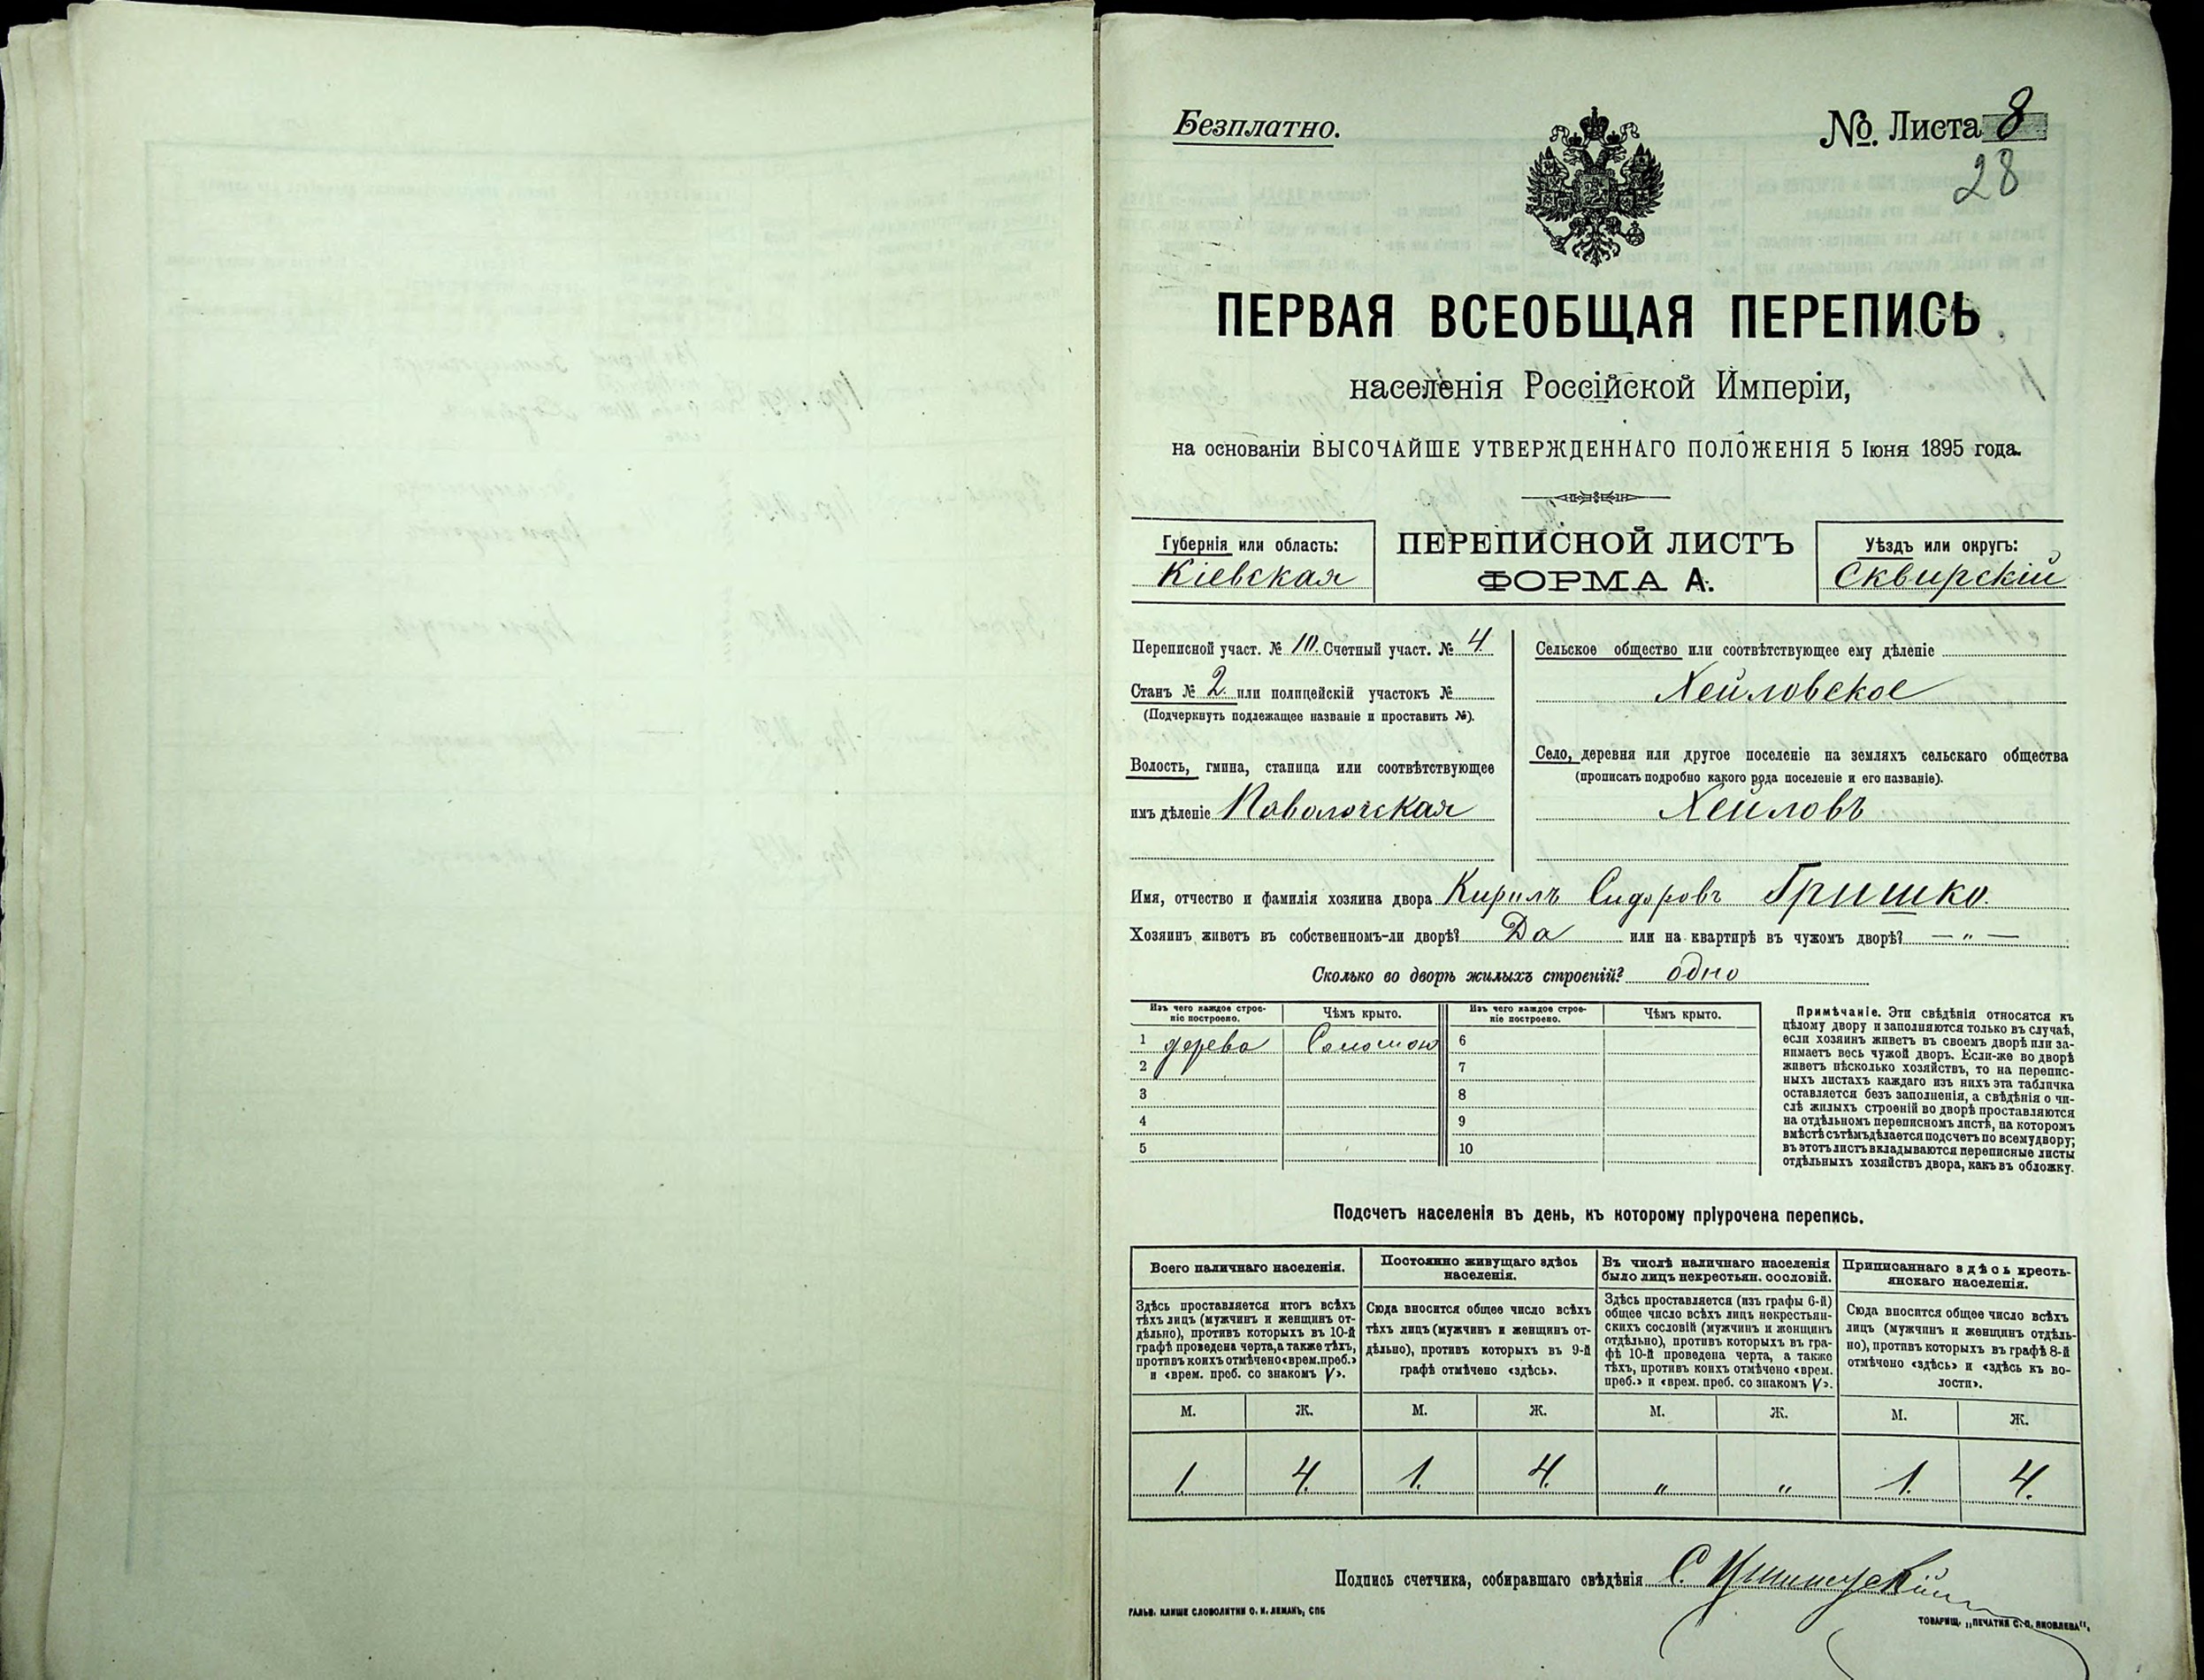 Безплатно.
№. Листа 8
28
ПЕРВАЯ ВСЕОБЩАЯ ПЕРЕПИСЬ
населенія Россійской Имперіи,
на основаніи ВЫСОЧАЙШЕ УТВЕРЖДЕННАГО ПОЛОЖЕНІЯ 5 Іюня 1895 года.
Губернія или область:
Кіевская
ПЕРЕПИСНОЙ ЛИСТЪ
ФОРМА А.
Уѣздъ или округъ:
Сквирскій
Переписной участ. № 10. Счетный участ. № 4.
Станъ № 2. или полицейскій участокъ №
(Подчеркнуть подлежащее названіе и проставить №).
Волость, гмина, станица или соотвѣтствующее
имъ дѣленіе Паволочская
Сельское общество или соотвѣтствующее ему дѣленіе
Хейловское
Село, деревня или другое поселеніе на земляхъ сельскаго общества
(прописать подробно какого рода поселеніе и его названіе).
Хейловъ
Имя, отчество и фамилія хозяина двора Кирилъ Сидоровъ Гришко.
Хозяинъ живетъ въ собственномъ-ли дворѣ? Да или на квартирѣ въ чужомъ дворѣ? — „ —
Сколько во дворѣ жилыхъ строеній? одно
Изъ чего каждое строе-
ніе построено.
Чѣмъ крыто.
Изъ чего каждое строе-
ніе построено.
Чѣмъ крыто.
1 дерева Соломою 6
2 7
3 8
4 9
5 10
Примѣчаніе. Эти свѣдѣнія относятся къ
цѣлому двору и заполняются только въ случаѣ,
если хозяинъ живетъ въ своемъ дворѣ или за-
нимаетъ весь чужой дворъ. Если-же во дворѣ
живетъ нѣсколько хозяйствъ, то на перепис-
ныхъ листахъ каждаго изъ нихъ эта табличка
оставляется безъ заполненія, а свѣдѣнія о чи-
слѣ жилыхъ строеній во дворѣ проставляются
на отдѣльномъ переписномъ листѣ, на которомъ
вмѣстѣ съ тѣмъ дѣлается подсчетъ по всему двору;
въ этотъ листъ вкладываются переписные листы
отдѣльныхъ хозяйствъ двора, какъ въ обложку.
Подсчетъ населенія въ день, къ которому пріурочена перепись.
Всего наличнаго населенія.
Здѣсь проставляется итогъ всѣхъ
тѣхъ лицъ (мужчинъ и женщинъ от-
дѣльно), противъ которыхъ въ 10-й
графѣ проведена черта, а также тѣхъ,
противъ коихъ отмѣчено «врем. преб.»
и «врем. преб. со знакомъ V».
Постоянно живущаго здѣсь
населенія.
Сюда вносится общее число всѣхъ
тѣхъ лицъ (мужчинъ и женщинъ от-
дѣльно), противъ которыхъ въ 9-й
графѣ отмѣчено «здѣсь».
Въ числѣ наличнаго населенія
было лицъ некрестьян. сословій.
Здѣсь проставляется (изъ графы 6-й)
общее число всѣхъ лицъ некрестьян-
скихъ сословій (мужчинъ и женщинъ
отдѣльно), противъ которыхъ въ гра-
фѣ 10-й проведена черта, а также
тѣхъ, противъ коихъ отмѣчено «врем.
преб.» и «врем. преб. со знакомъ V».
Приписаннаго здѣсь кресть-
янскаго населенія.
Сюда вносится общее число всѣхъ
лицъ (мужчинъ и женщинъ отдѣль-
но), противъ которыхъ въ графѣ 8-й
отмѣчено «здѣсь» и «здѣсь къ во-
лости».
М. Ж. М. Ж. М. Ж. М. Ж.
1. 4. 1. 4. „ „ 1. 4.
Подпись счетчика, собиравшаго свѣдѣнія С.
ГАЛЬВ. КЛИШЕ СЛОВОЛИТНИ О. И. ЛЕМАНЪ, СПБ
ТОВАРИЩ. „ПЕЧАТНЯ С. П. ЯКОВЛЕВА".